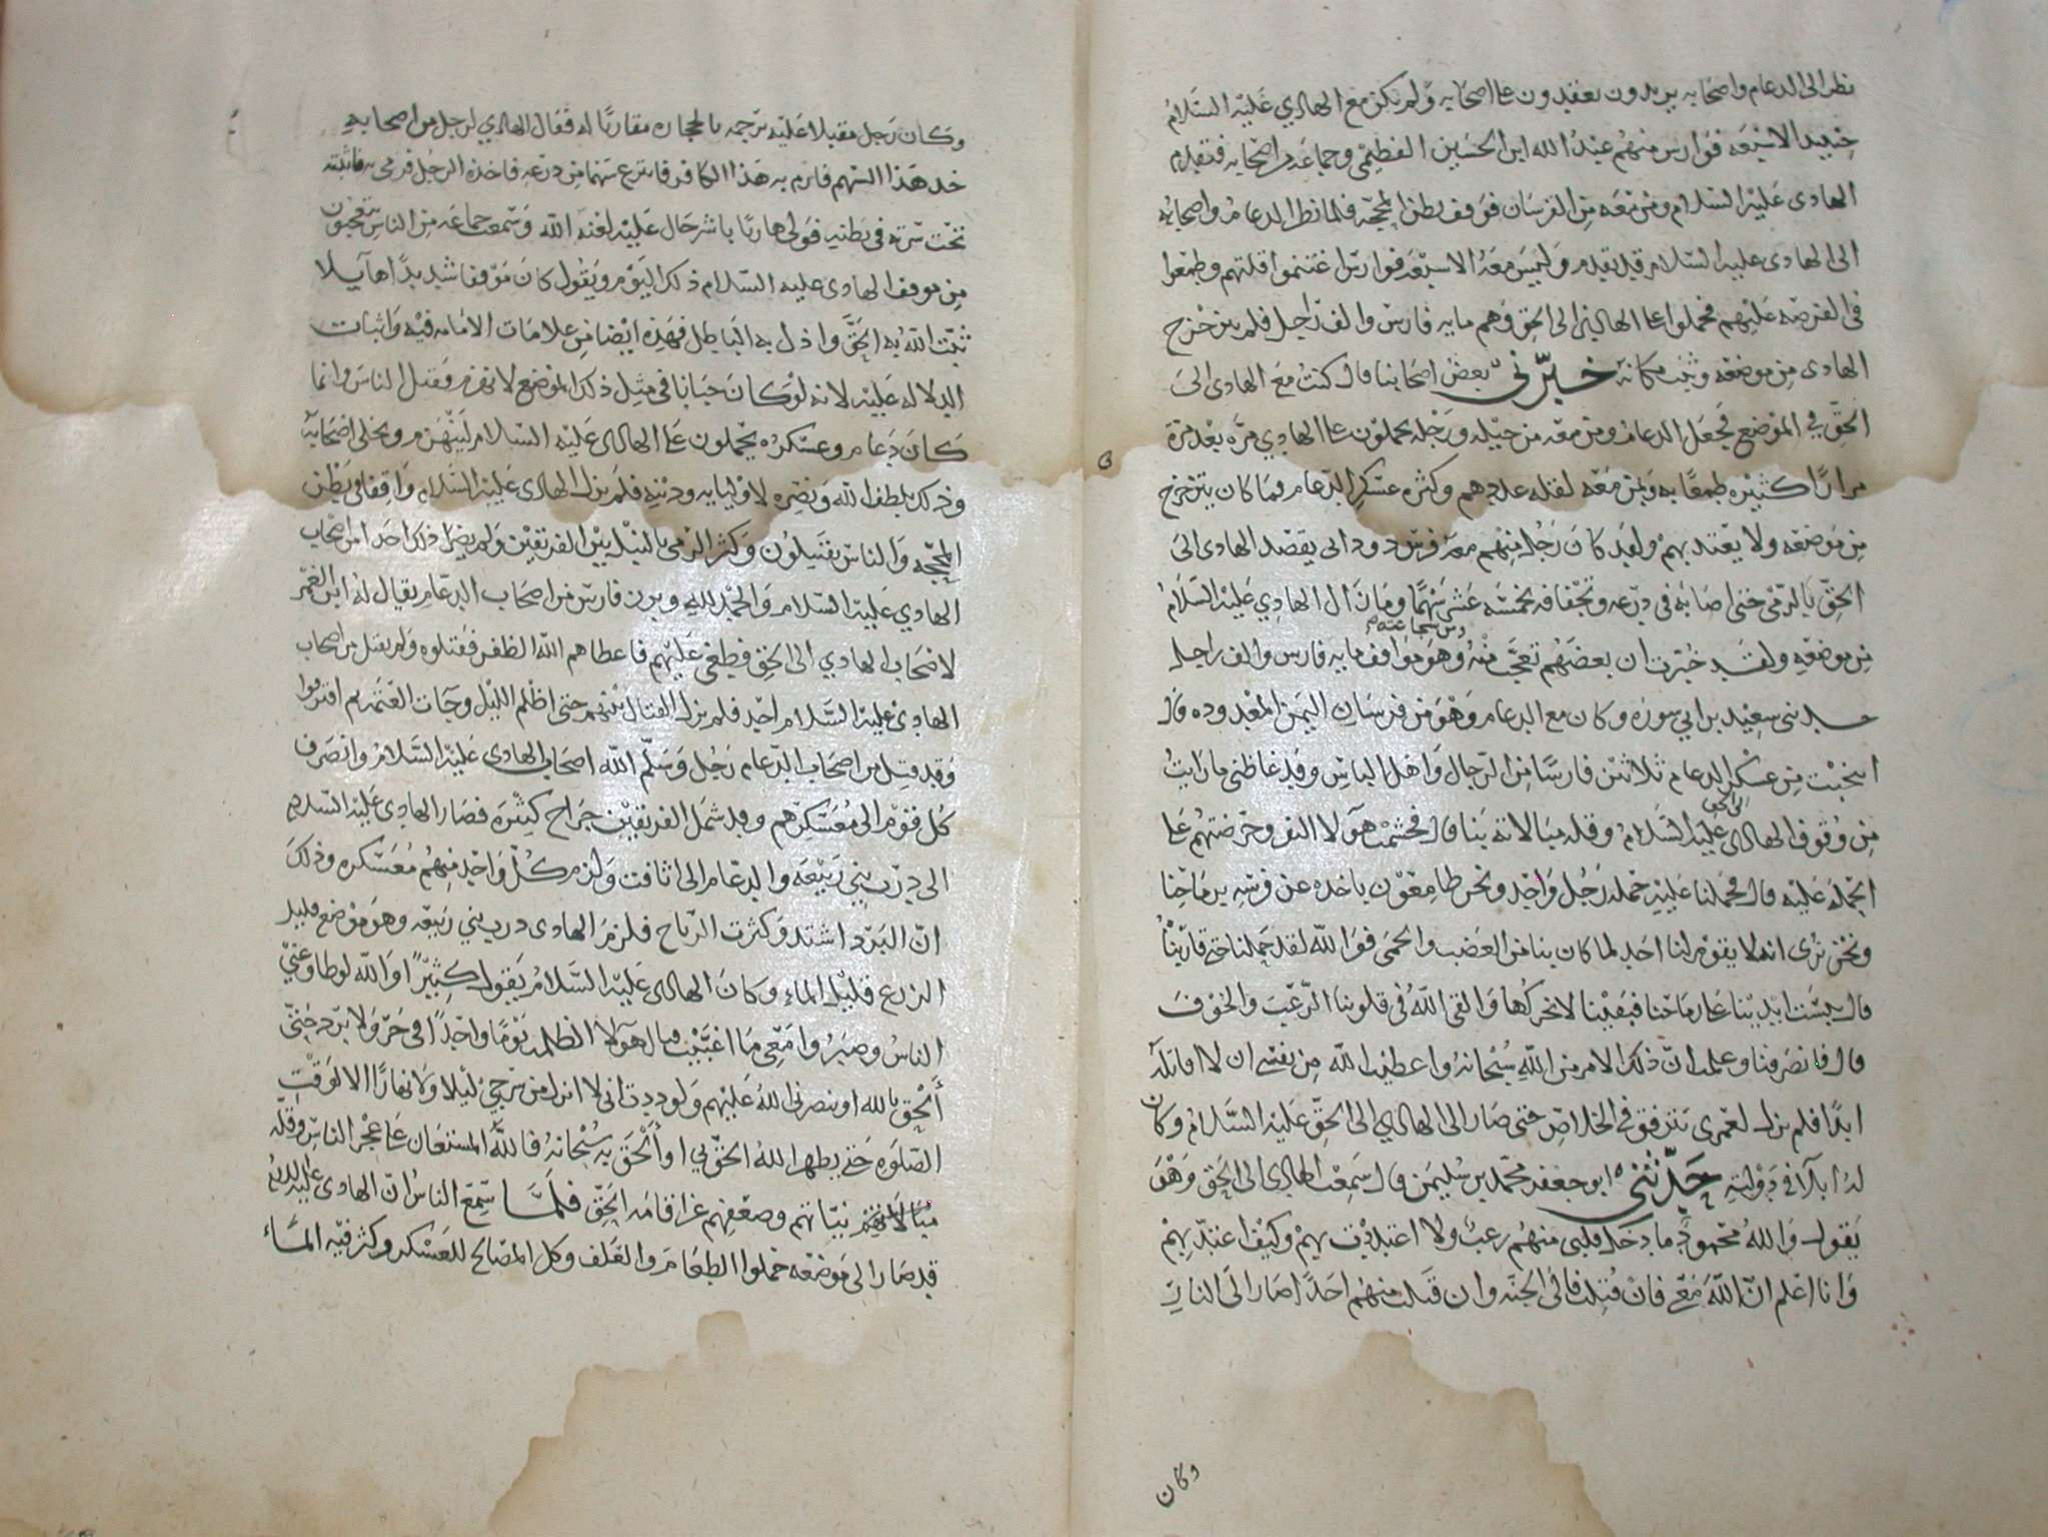 نظر الى الدعام واصحابه يريدون يعقدون على اصحابه ولم يكن مع الهادي عليه السلام
الا سبعه فوارس منهم عبد الله ابن الحسين الفطيمي وجماعه من اصحابه فتقدم
الهادى عليه السلام ومن معه من الفرسان فوقف بطن المحجه فلما نظر الدعام واصحابه
الى الهادى عليه السلام قد تقدم وليس معه الا سبعه فوارس اغتنموا قلتهم وطمعوا
فى الفرصه عليهم فحملوا على الهادي الى الحق وهم مايه فارس والف راجل فلم يتزحزح
الهادى من موضعه وثبت مكانه خبرني بعض اصحابنا قال كنت مع الهادى الى
الحق في الموضع فجعل الدعام ومن معه من خيله ورجله يحملون على الهادي مره بعد مرة
مرارًا كثيره طمعًا به وبمن معه لقله عددهم وكثره عسكر الدعام فما كان يتزحزح
من موضعه ولا يعتد بهم ولقد كان رجل منهم معه قوس دودانى يقصد الهادى الى
الحق بالرمي حتى اصابه في درعه وتجفافه بخمسه عشر سهمًا وما زال الهادي عليه السلام
من موضعه ولقد خبرت ان بعضهم تعجب منه ومن شجاعته وهو مواقف مايه فارس والف راجل
حدثنى سعيد بن ابي سوره وكان مع الدعام وهو من فرسان اليمن المعدوده قال
انتخبت من عسكر الدعام ثلاثين فارسًا من الرجال واهل الباس وقد غاظنى ما رايت
من وقوف الهادى الى الحق عليه السلام وقله مبالاته بنا قال فحشمت هولا النفر وحرضتهم على
الحمله عليه قال فحملنا عليه حمله رجل واحد ونحن طامعون باخذه عن فرسه برماحنا
ونحن نرى انه لا يقوم لنا احد لما كان بنا من الغضب والحمى فوالله لقد حملنا حتى قاربناه
قال يبست ايدينا على رماحنا فبقينا لا نحركها والقى الله في قلوبنا الرعب والخوف
قال فانصرفنا وعلمت ان ذلك الامر من الله سبحانه واعطيت الله من نفسي ان لا اقاتله
ابدًا فلم يزل لعمرى يترفق في الخلاص حتى صار الى الهادي الى الحق عليه السلام وكان
له في دولته حدثني ابو جعفر محمد بن سليمن قال سمعت الهادى الى الحق وهو
يقول والله محمود ما دخل قلبى منهم رعب ولا اعتديت بهم وكيف اعتد بهم
وانا اعلم ان الله معي فان قتلت فالى الجنه وان قتلت منهم احدًا صار الى النار
وكان
وكان رجل مقبلا عليه يرجمه بالحجاره مقاربًا له فقال الهادي لرجل من اصحابه
خذ هذا السهم فارم به هذا الكافر فانتزع سهما من درعه فاخذه الرجل فرمى به فاثبته
تحت سرته في بطنه فولى هاربًا باشر حال عليه لعنه الله وسمعت جماعه من الناس يتعجبون
من موقف الهادى عليه السلام ذلك اليوم ويقول كان موقفا شديدًا هايلا
ثبت الله به الحق واذل به الباطل فهذه ايضا من علامات الامامه فيه واثبات
الدلاله عليه لانه لو كان جبانا في مثل ذلك الموضع لانهزم وقتل الناس وانما
كان دعام وعسكره يحملون على الهادى عليه السلام لينهزم ويخلى اصحابه
وذلك بلطف الله ونصره لاوليايه ودينه فلم يزل الهادى عليه السلام واقفا في بطن
المحجه والناس يقتتلون وكثر الرمي بالنبل بين الفريقين ولم يضر ذلك احدا من اصحاب
الهادي عليه السلام والحمد لله وبرز فارس من اصحاب الدعام يقال له ابن الغمر
لاصحاب الهادي الى الحق فطغى عليهم فاعطاهم الله الظفر فقتلوه ولم يقتل من اصحاب
الهادى عليه السلام احد فلم يزل القتال بينهم حتى اظلم الليل وجات العتمه ثم افترقوا
وقد قتل من اصحاب الدعام رجل وسلم الله اصحاب الهادى عليه السلام وانصرف
كل قوم الى معسكرهم وقد شمل الفريقين جراح كثيره فصار الهادى عليه السلام
الى درب بني ربيعه والدعام الى اثافت ولزم كل واحد منهم معسكره وذلك
ان البرد اشتد وكثرت الرياح فلزم الهادى درب بني ربيعه وهو موضع قليل
الزرع قليل الماء وكان الهادى عليه السلام يقول كثيرًا والله لو طاوعني
الناس وصبروا معي ما اغببت قتال هولا الظلمه يومًا واحدًا في حر ولا برد حتى
ألحق بالله او ينصرني الله عليهم ولوددت اني لا انزل من سرجي ليلا ولا نهارًا الا لوقت
الصلوه حتى يظهر الله الحق بي او ألحق به سبحانه فالله المستعان على عجز الناس وقله
نياتهم وضعفهم عن اقامه الحق فلما سمع الناس ان الهادى عليه السلام
قد صار الى موضعه حملوا الطعام والعلف وكل المصالح للعسكر وكثر فيه الماء